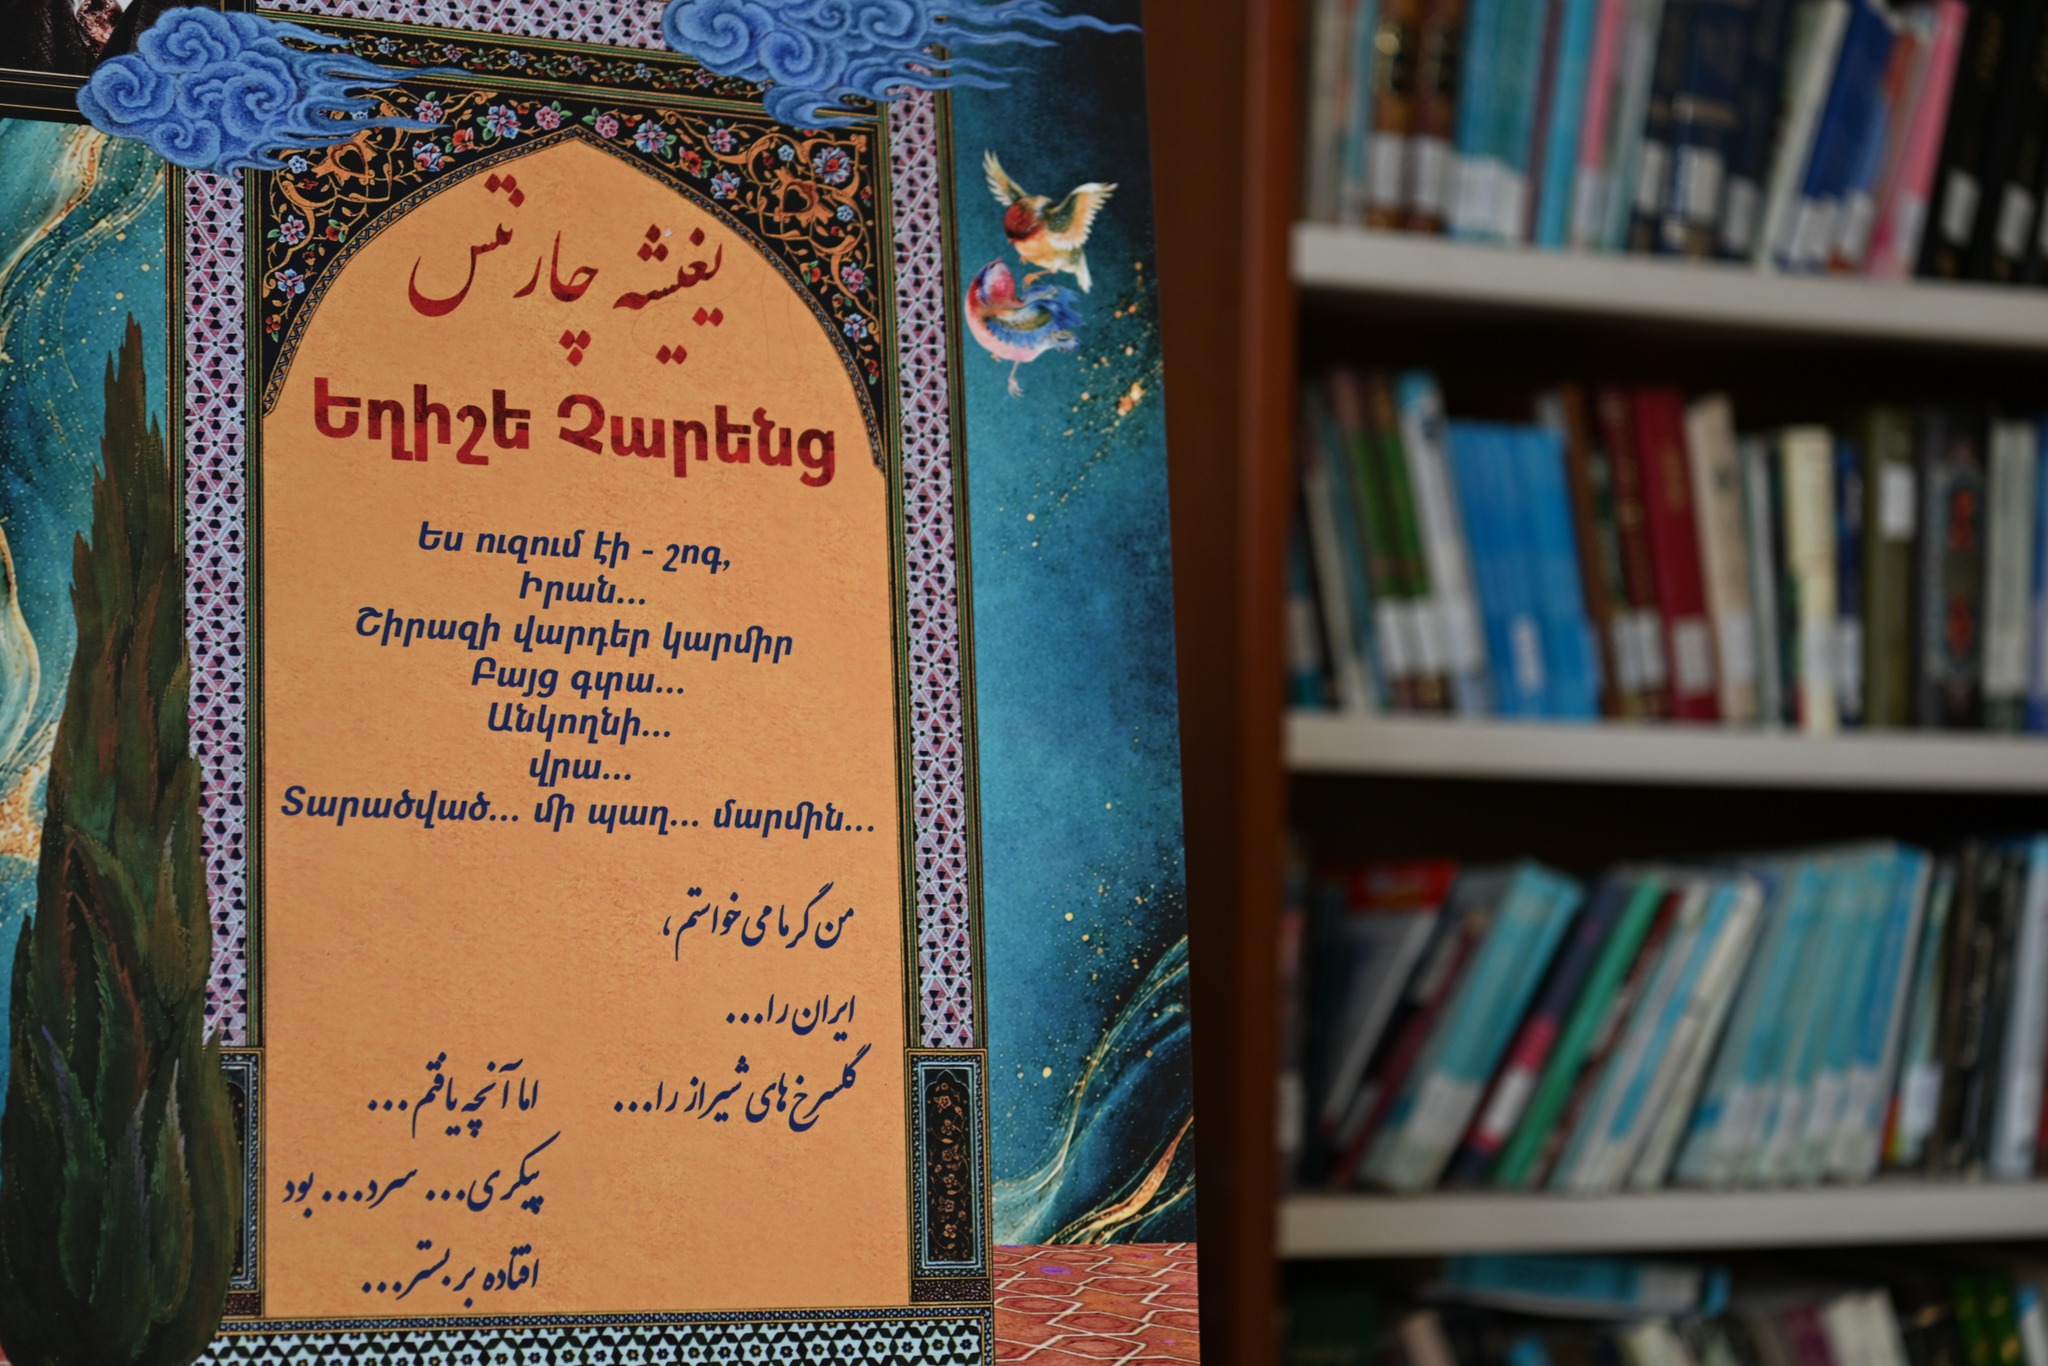 یغیشه چارنتس
Եղիշե Չարենց
Ես ուզում էի - շոգ,
Իրան...
Շիրազի վարդեր կարմիր
Բայց գտա...
Անկողնի...
վրա...
Տարածված... մի պաղ... մարմին...
من گرما می‌خواستم،
ایران را...
گلسرخ‌های شیراز را...
اما آنچه یافتم...
پیکری... سرد... بود
افتاده بر بستر...